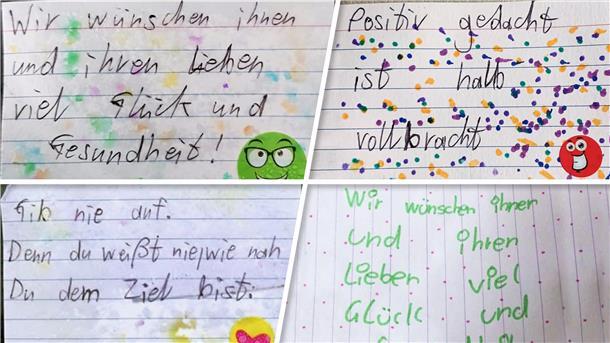 Wir wünschen ihnen
und ihren Lieben
viel Glück und
Gesundheit!
Positiv gedacht
ist halb
vollbracht
Gib nie auf.
Denn du weißt nie, wie nah
Du dem Ziel bist.
Wir wünschen ihnen
und ihren
Lieben viel
Glück und